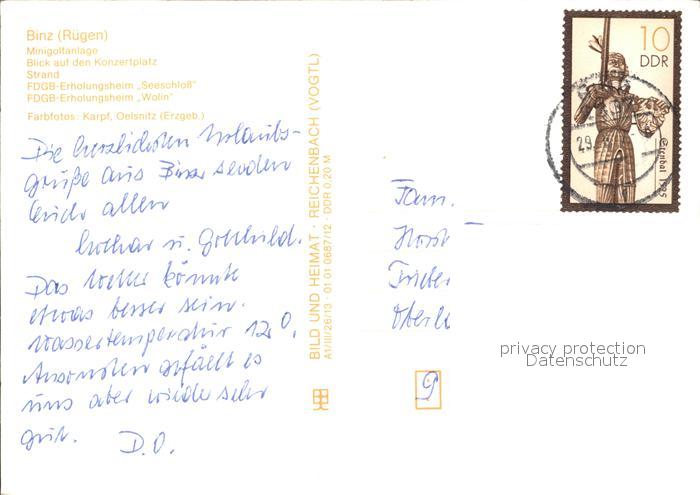 Binz (Rügen)
Minigolfanlage
Blick auf den Konzertplatz
Strand
FDGB-Erholungsheim „Seeschloß"
FDGB-Erholungsheim „Wolin"
Farbfotos: Karpf, Oelsnitz (Erzgeb.)
Die herzlichsten Urlaubs-
grüße aus Binz senden
Euch allen
Lothar u.
Das Wetter könnte
etwas besser sein.
Wassertemperatur 12°.
Ansonsten gefällt es
uns aber wieder sehr
gut. D.O.
BILD UND HEIMAT · REICHENBACH (VOGTL)
A1/III/26/13 · 01 01 0687/12 · DDR 0,20 M
10
DDR
Stendal 1525
29.
Fam.
Horst
9
privacy protection
Datenschutz